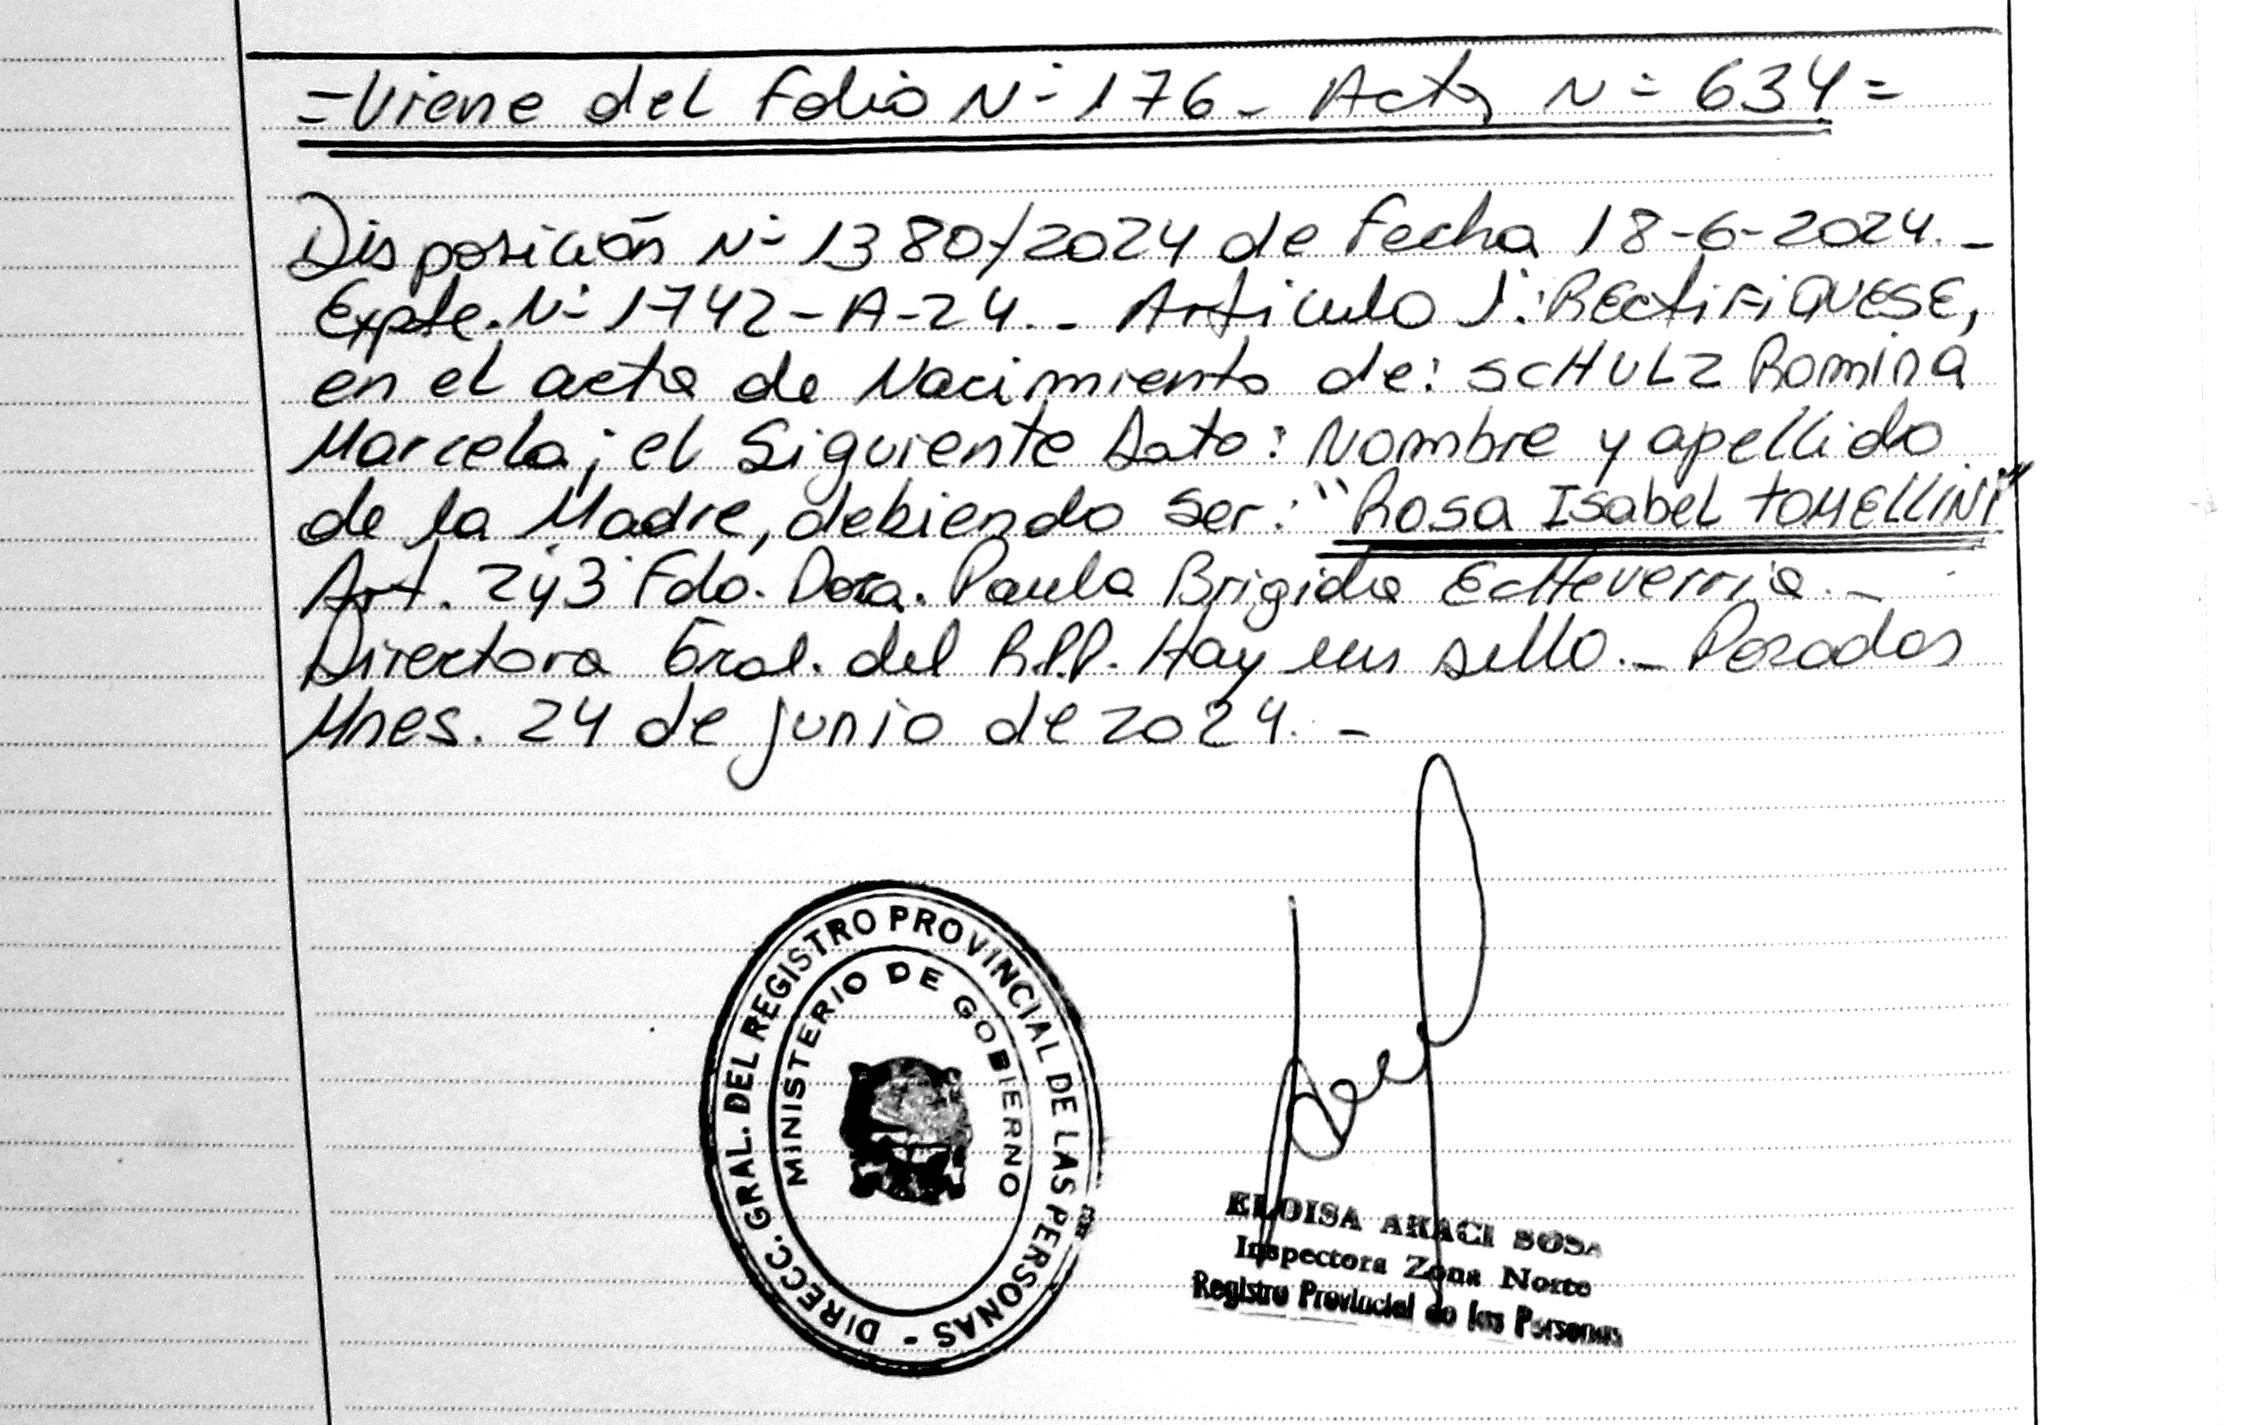 =Viene del folio Nº 176- Acta Nº 634=
Disposición Nº 1380/2024 de fecha 18-6-2024.-
Expte. Nº 1742-A-24.- Artículo 1º: RECtiFiQUESE,
en el acta de Nacimiento de: SCHULZ Romina
Marcela; el Siguiente dato: Nombre y apellido
de la Madre, debiendo ser: "Rosa Isabel TOMELLINI"
Art. 2y3 Fdo. Dora. Paula Brigida Echeverria.-
Directora Gral. del R.P.P. Hay un sello.- Posadas
Mnes. 24 de junio de 2024.-
DIRECC. GRAL. DEL REGISTRO PROVINCIAL DE LAS PERSONAS -
MINISTERIO DE GOBIERNO
ELOISA ARACI SOSA
Inspectora Zona Norte
Registro Provincial de las Personas